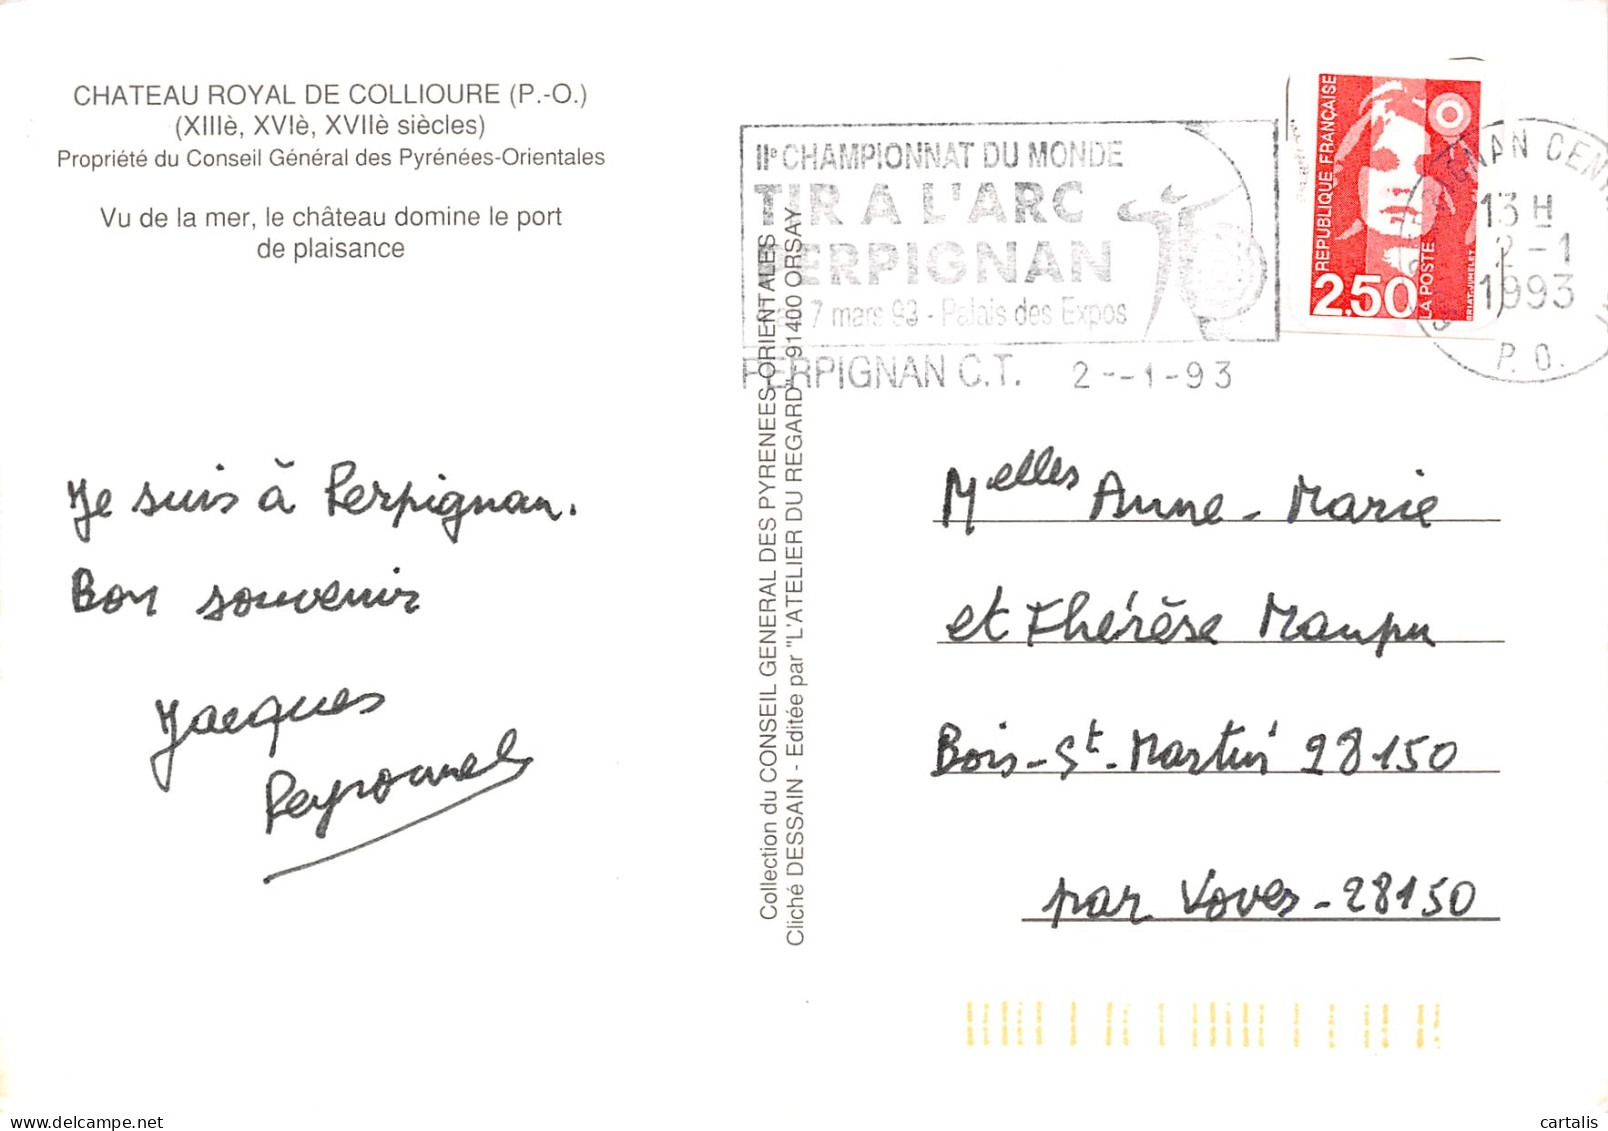 CHATEAU ROYAL DE COLLIOURE (P.-O.)
(XIIIè, XVIè, XVIIè siècles)
Propriété du Conseil Général des Pyrénées-Orientales
Vu de la mer, le château domine le port
de plaisance
Je suis à Perpignan.
Bon souvenir
Jacques
Peyronnel
Collection du CONSEIL GENERAL DES PYRENEES-ORIENTALES
Cliché DESSAIN - Editée par "L'ATELIER DU REGARD" 91400 ORSAY
IIe CHAMPIONNAT DU MONDE
TIR A L'ARC
PERPIGNAN
7 mars 93 - Palais des Expos
PERPIGNAN C.T. 2--1-93
REPUBLIQUE FRANÇAISE
2,50
LA POSTE
BRIAT-JUMELET
PERPIGNAN CENT
13 H
2-1
1993
P.O.
Melles Anne-Marie
et Thérèse Maupu
Bois-St-Martin 28150
par Voves-28150
cartalis